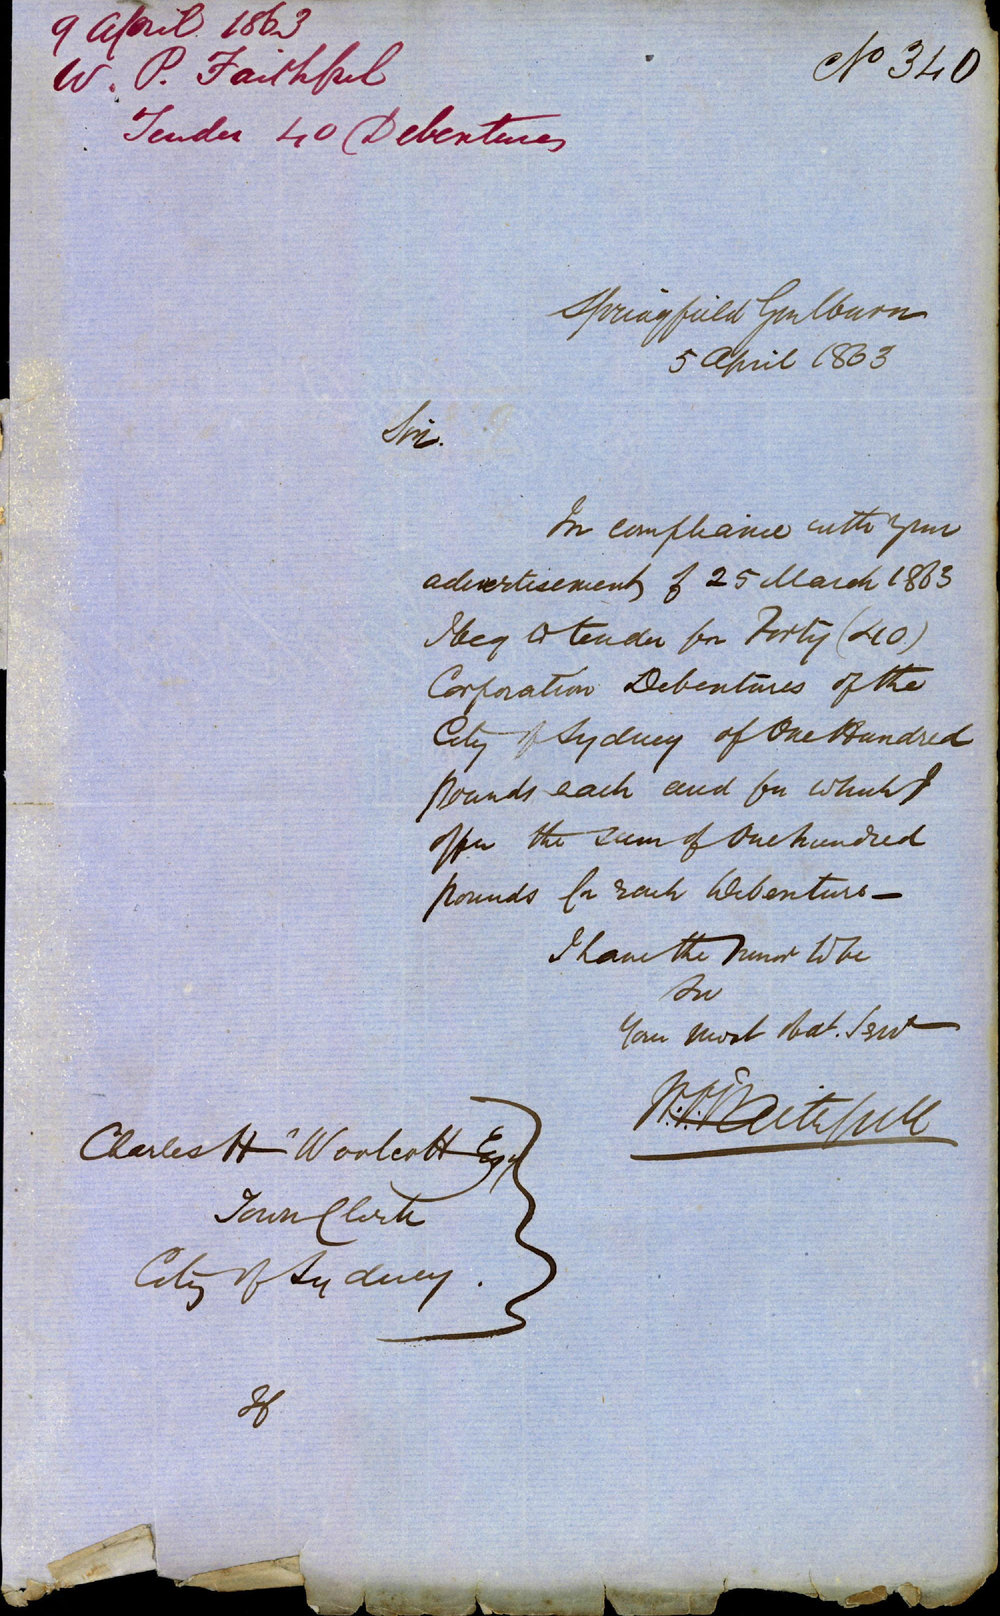 9 April 1863
W. P. Faithful
Tender 40 Debentures
No 340
Springfield Goulburn
5 April 1863
Sir.
In compliance with your
advertisement of 25 March 1863
I beg to tender for Forty (40)
Corporation Debentures of the
City of Sydney of One Hundred
pounds each and for which I
offer the sum of One hundred
pounds for each Debenture —
I have the honor to be
Sir
Your most obdt. Servt
W. P. Faithfull
Charles H Woolcott Esqr
Town Clerk
City of Sydney.